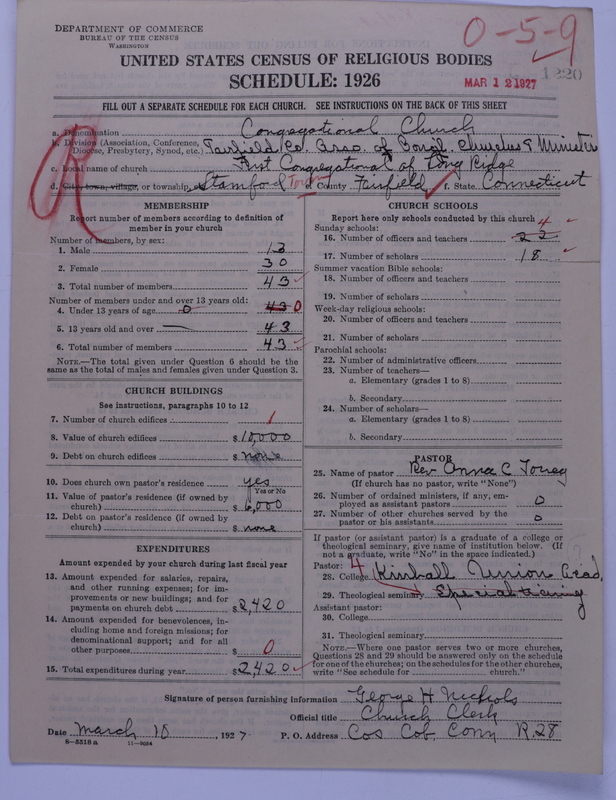 DEPARTMENT OF COMMERCE
BUREAU OF THE CENSUS
WASHINGTON
0-5-9
MAR 12 1927
1220
UNITED STATES CENSUS OF RELIGIOUS BODIES
SCHEDULE: 1926
FILL OUT A SEPARATE SCHEDULE FOR EACH CHURCH. SEE INSTRUCTIONS ON THE BACK OF THIS SHEET
R
a. Denomination Congregational Church
b. Division (Association, Conference, Diocese, Presbytery, Synod, etc.) Fairfield Co. Asso. of Congl. Churches & Ministers
c. Local name of church First Congregational of Long Ridge
d. City, town, village, or township Stamford Town e. County Fairfield f. State Connecticut
MEMBERSHIP
Report number of members according to definition of
member in your church
Number of members, by sex:
1. Male 13
2. Female 30
3. Total number of members 43
Number of members under and over 13 years old:
4. Under 13 years of age 0 430 0
5. 13 years old and over 43
6. Total number of members 43
NOTE.—The total given under Question 6 should be the
same as the total of males and females given under Question 3.
CHURCH BUILDINGS
See instructions, paragraphs 10 to 12
7. Number of church edifices 1
8. Value of church edifices $ 10,000
9. Debt on church edifices $ none
10. Does church own pastor's residence? yes
Yes or No
11. Value of pastor's residence (if owned by
church) $ 6,000
12. Debt on pastor's residence (if owned by
church) $ none
EXPENDITURES
Amount expended by your church during last fiscal year
13. Amount expended for salaries, repairs,
and other running expenses; for im-
provements or new buildings; and for
payments on church debt $ 2,420
14. Amount expended for benevolences, in-
cluding home and foreign missions; for
denominational support; and for all
other purposes $ 0
15. Total expenditures during year $ 2,420
CHURCH SCHOOLS
Report here only schools conducted by this church
Sunday schools: 4
16. Number of officers and teachers 22
17. Number of scholars 18
Summer vacation Bible schools:
18. Number of officers and teachers
19. Number of scholars
Week-day religious schools:
20. Number of officers and teachers
21. Number of scholars
Parochial schools:
22. Number of administrative officers
23. Number of teachers—
a. Elementary (grades 1 to 8)
b. Secondary
24. Number of scholars—
a. Elementary (grades 1 to 8)
b. Secondary
PASTOR
25. Name of pastor Rev Anna C
(If church has no pastor, write "None")
26. Number of ordained ministers, if any, em-
ployed as assistant pastors 0
27. Number of other churches served by the
pastor or his assistants 0
If pastor (or assistant pastor) is a graduate of a college or
theological seminary, give name of institution below. (If
not a graduate, write "No" in the space indicated.)
Pastor: 4
28. College Kimball Union Acad,
29. Theological seminary Special training
Assistant pastor:
30. College
31. Theological seminary
NOTE.—Where one pastor serves two or more churches,
Questions 28 and 29 should be answered only on the schedule
for one of the churches; on the schedules for the other churches,
write "See schedule for ........ church."
Signature of person furnishing information George H Nichols
Official title Church Clerk
Date March 10, 1927 P. O. Address Cos Cob Conn R. 28
8-5518 a 11-9084